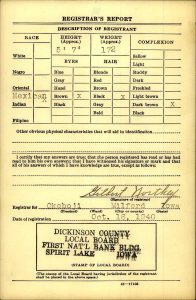 REGISTRAR'S REPORT
DESCRIPTION OF REGISTRANT
RACE HEIGHT (Approx.) WEIGHT (Approx.) COMPLEXION
5' 7" 172
White Sallow
EYES HAIR Light
Negro Blue Blonde Ruddy
Gray Red Dark
Oriental Hazel Brown Freckled
Mexican X Brown X Black X Light brown
Indian Black Gray Dark brown X
Bald Black
Filipino
Other obvious physical characteristics that will aid in identification
I certify that my answers are true; that the person registered has read or has had
read to him his own answers; that I have witnessed his signature or mark and that
all of his answers of which I have knowledge are true, except as follows:
Gilbert
(Signature of registrar)
Registrar for Okoboji Milford Iowa
Date of registration Oct. 16, 1940
DICKINSON COUNTY
LOCAL BOARD
FIRST NAT'L BANK BLDG.
SPIRIT LAKE IOWA
(STAMP OF LOCAL BOARD)
(The stamp of the Local Board having jurisdiction of the registrant
shall be placed in the above space.)